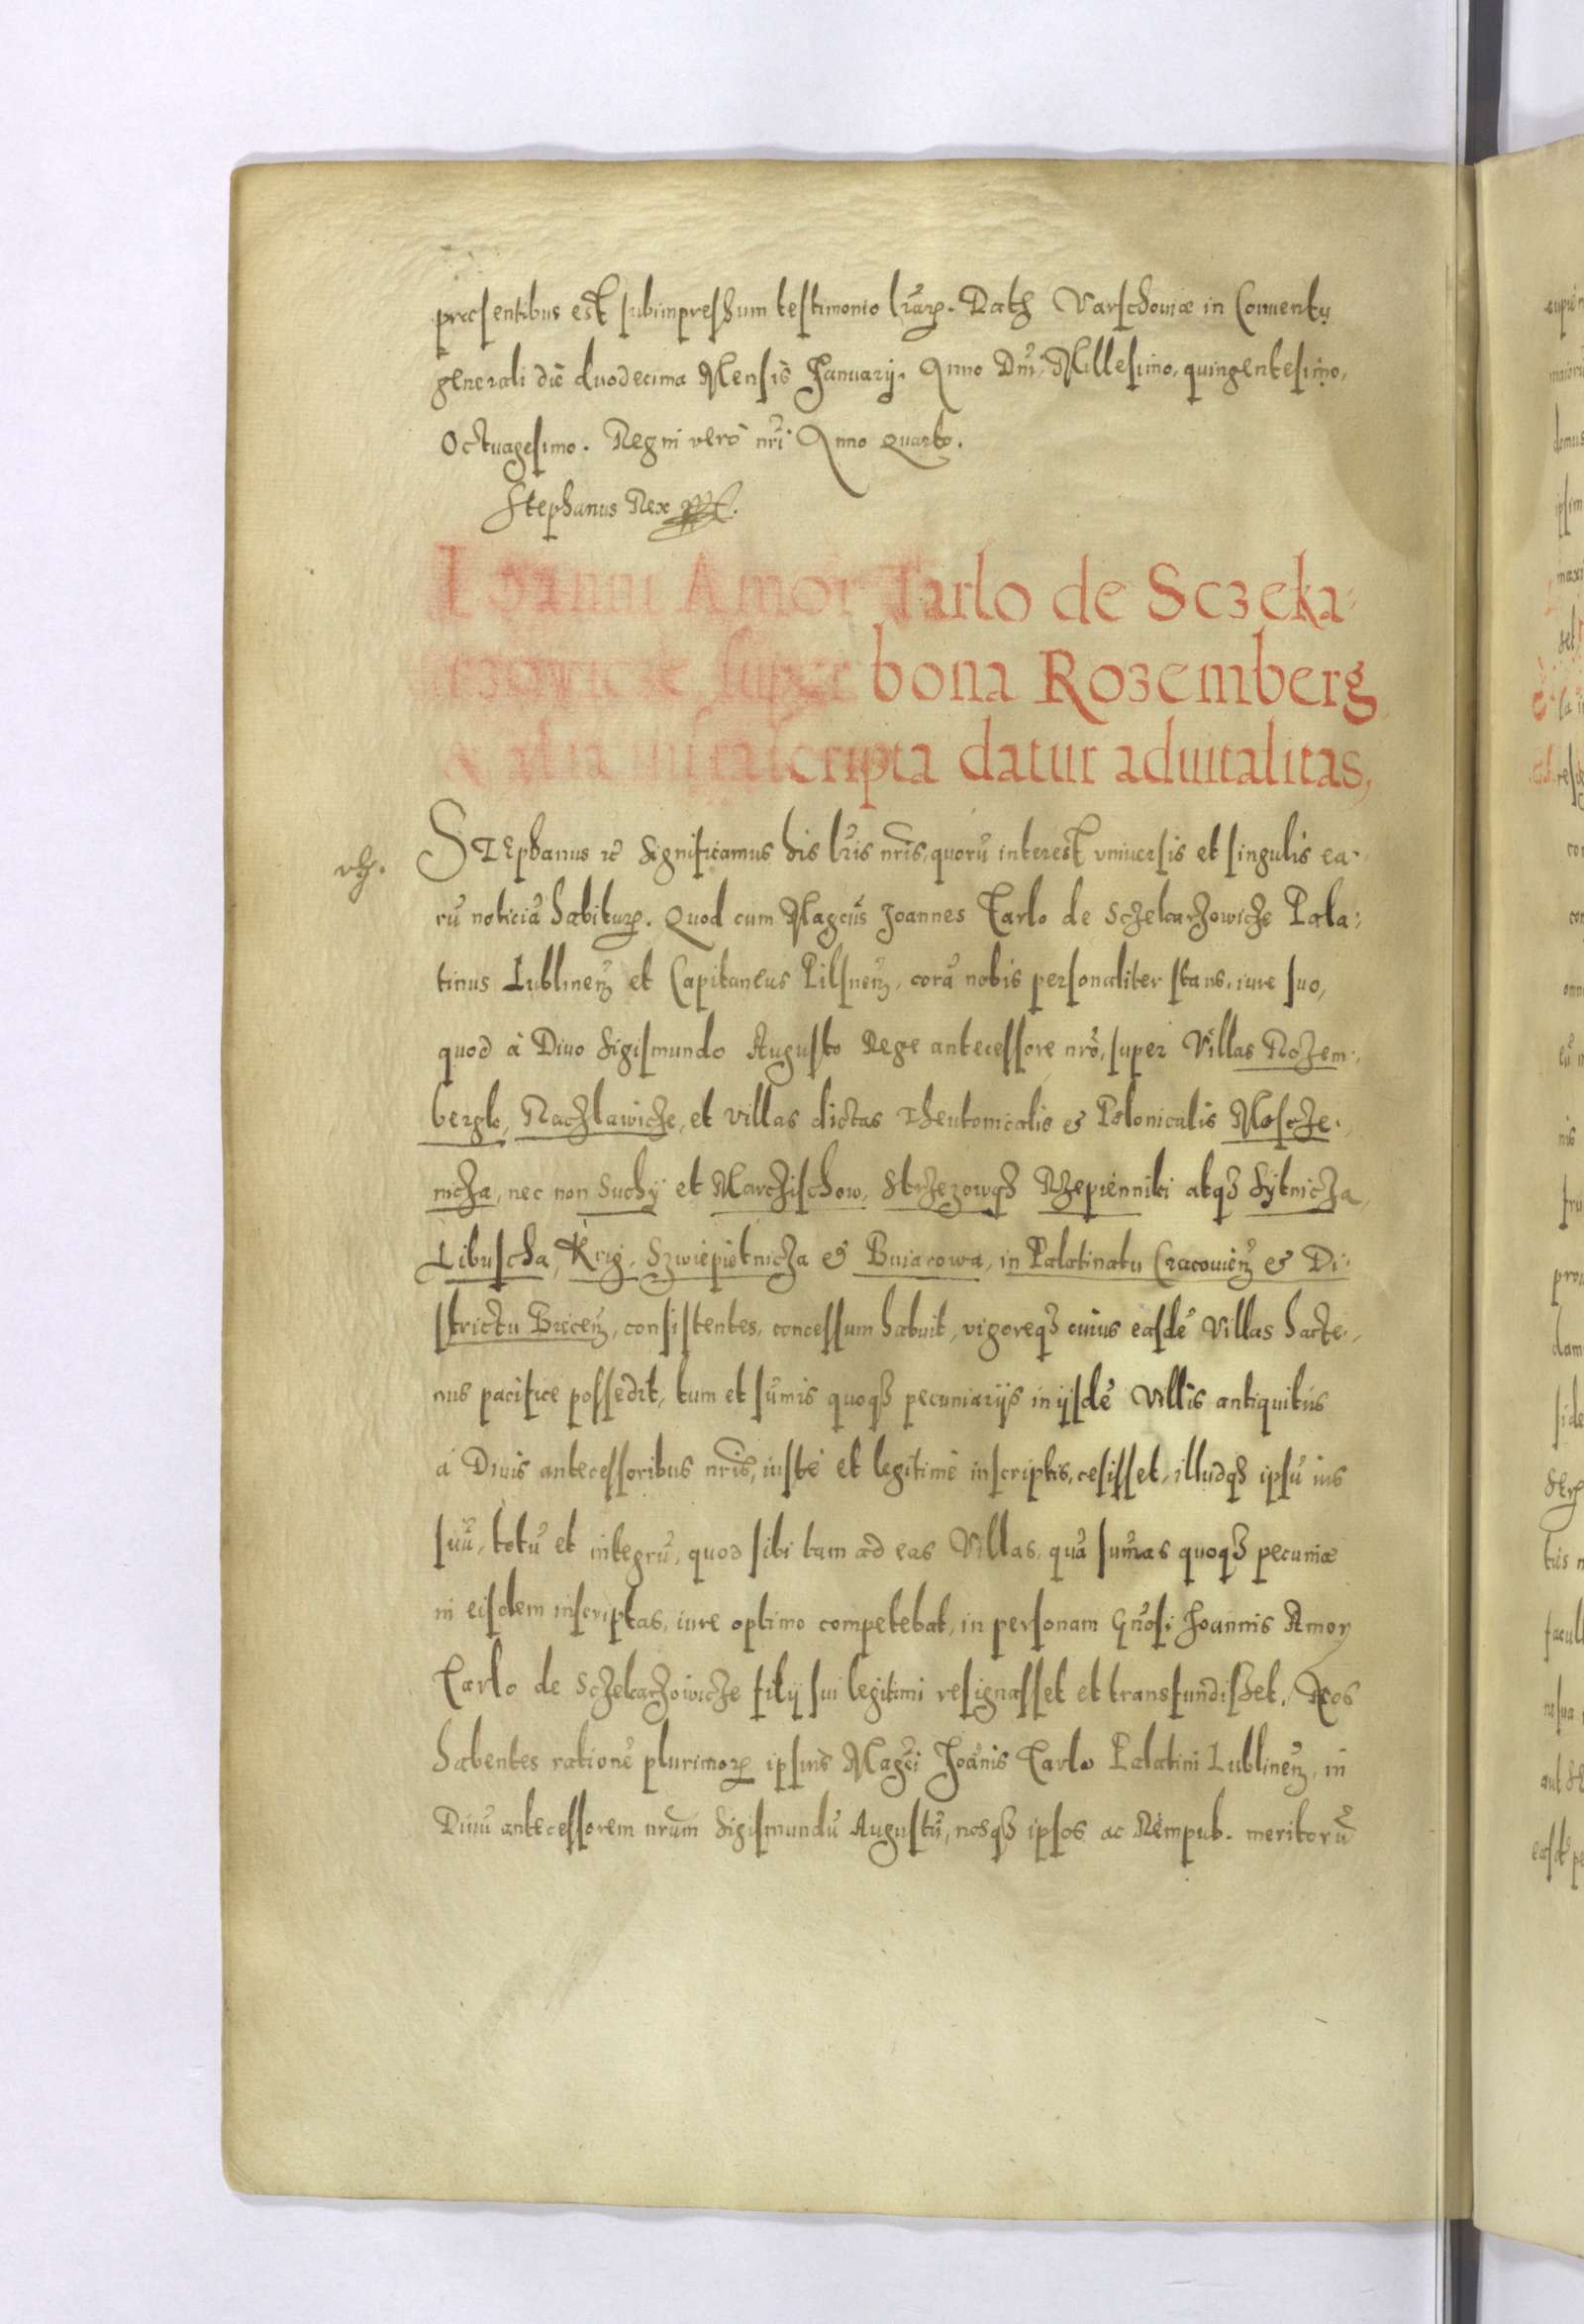 præsentibus est subimpressum testimonio lrãrꝫ. Datꝫ Varschouiæ in Conuentu
generali die duodecima Mensis Januarij. Anno Dnĩ. Millesimo, quingentesimo,
Octuagesimo. Regni verò nri Anno quarto.
Stephanus Rex
Ioanni Amor Tarlo de Sczeka-
rzowicze super bona Rozemberg
& alia infrascripta datur aduitalitas,
STEphanus ꝛc̃ Significamus his lr̃is nrĩs, quorũ interest vniuersis et singulis ea-
rũ noticiã habiturꝫ. Quod cum Magcũs Joannes Tarlo de Sczekarzowicze Pala:
tinus Lublineñ et Capitaneus Pilsneñ, corã nobis personaliter stans, iure suo,
quod à Diuo Sigismundo Augusto Rege antecessore nrõ, super Villas Rozem-
bergk, Raczlawicze, et villas dictas Theutonicalis & Polonicalis Moscze-
nicza, nec non Suchÿ et Marczischow, Strzezowqꝫ Rzepienniki atqꝫ Sÿtnicza,
Libuscha, Krig, Szwiepietnicza & Buiarowa, in Palatinatu Cracouieñ & Di-
strictu Bieceñ, consistentes, concessum habuit, vigoreqꝫ cuius easdẽ Villas hacte-
nus pacifice possedit, tum et sũmis quoqꝫ pecuniarijs in ijsdẽ Villis antiquitùs
à Diuis antecessoribus nrĩs, iustè et legitimè inscriptis, cesisset, illudqꝫ ipsũ ius
suũ, totũ et integrũ, quod sibi tam ad eas Villas, quã sum̃as quoqꝫ pecuniæ
in eisdem inscriptas, iure optimo competebat, in personam Gnõsi Joannis Amor
Tarlo de Sczekarzowicze filij sui legitimi resignasset et transfundisset, Nos
habentes rationẽ plurimorꝫ ipsius Magci Joãnis Tarlo Palatini Lublineñ, in
Diuũ antecessorem nrũm Sigismundũ Augustũ, nosqꝫ ipsos ac Rèmpub. meritorũ